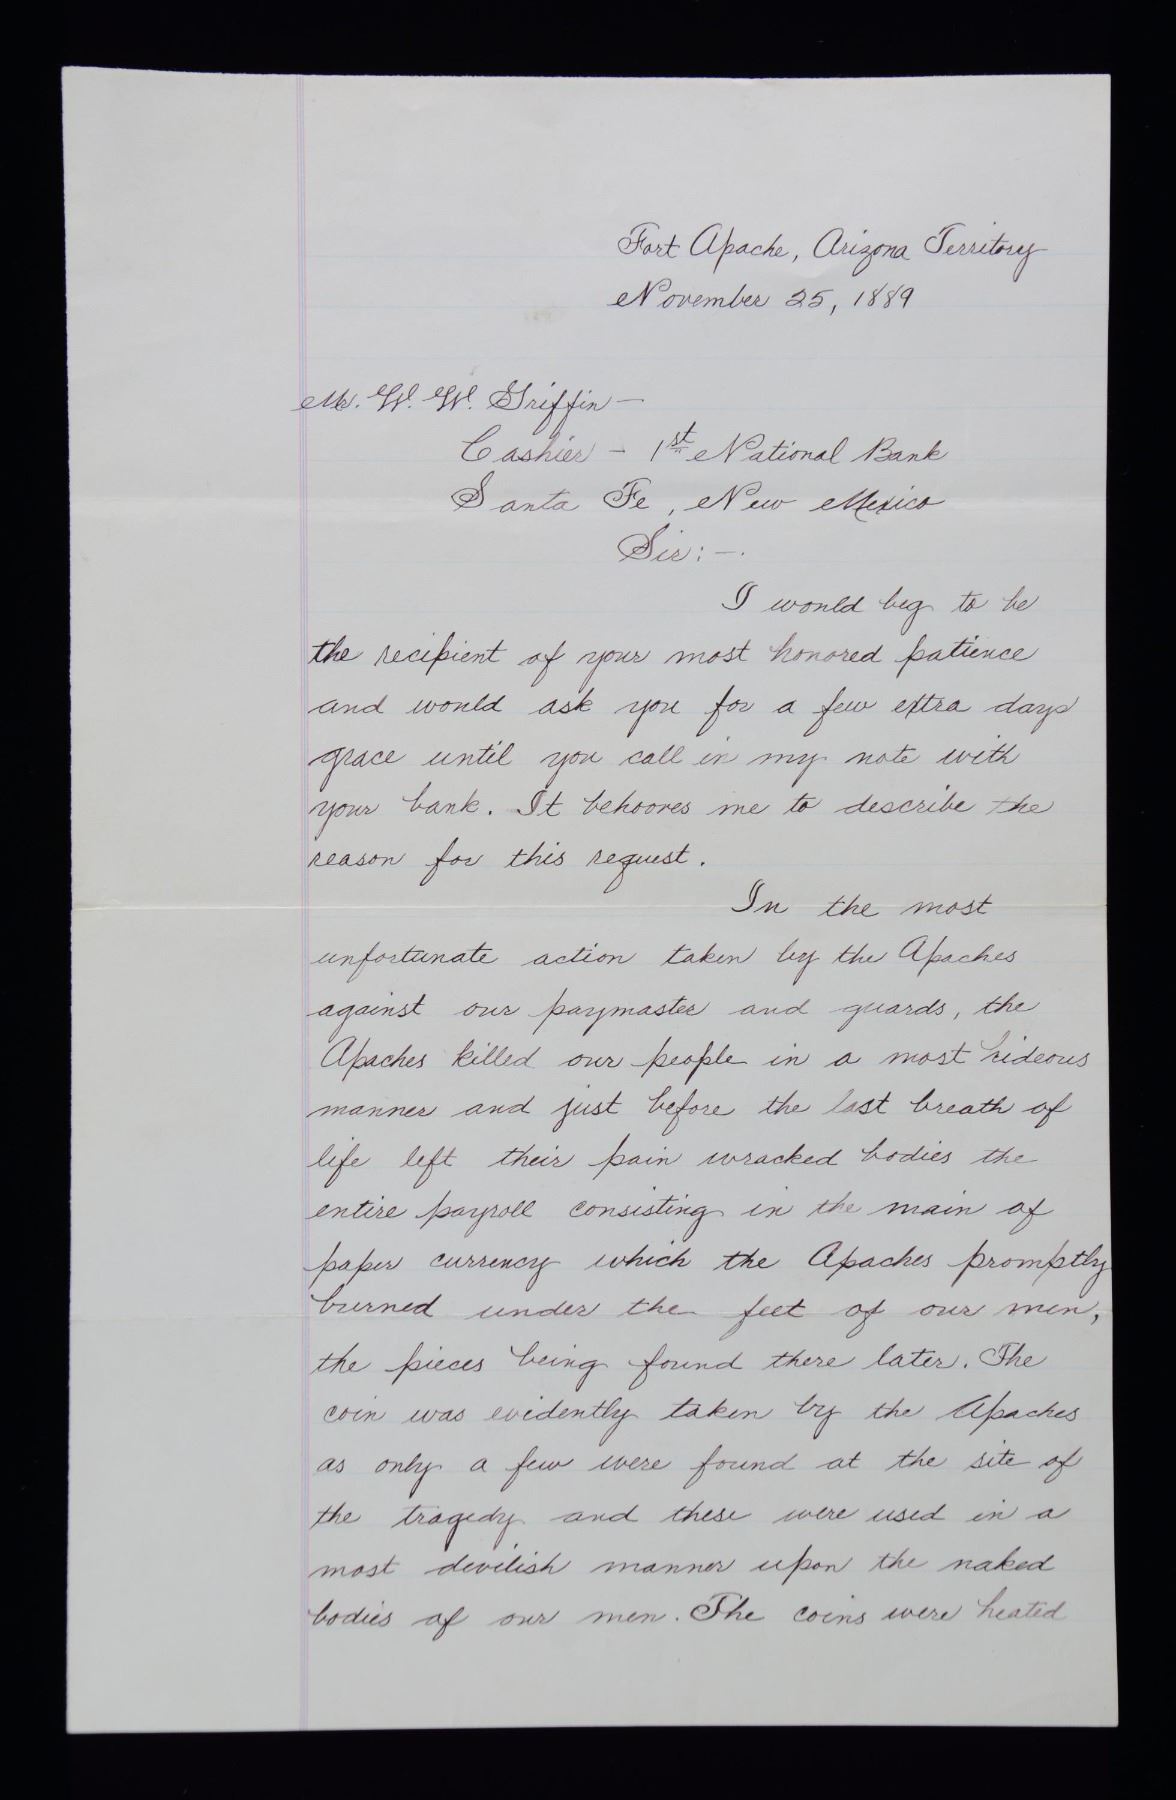 Fort Apache, Arizona Territory
November 25, 1889
Mr. W. W. Griffin —
Cashier - 1st National Bank
Santa Fe, New Mexico
Sir: —.
I would beg to be
the recipient of your most honored patience
and would ask you for a few extra days
grace until you call in my note with
your bank. It behooves me to describe the
reason for this request.
In the most
unfortunate action taken by the Apaches
against our paymaster and guards, the
Apaches killed our people in a most hideous
manner and just before the last breath of
life left their pain wracked bodies the
entire payroll consisting in the main of
paper currency which the Apaches promptly
burned under the feet of our men,
the pieces being found there later. The
coin was evidently taken by the Apaches
as only a few were found at the site of
the tragedy and these were used in a
most devilish manner upon the naked
bodies of our men. The coins were heated